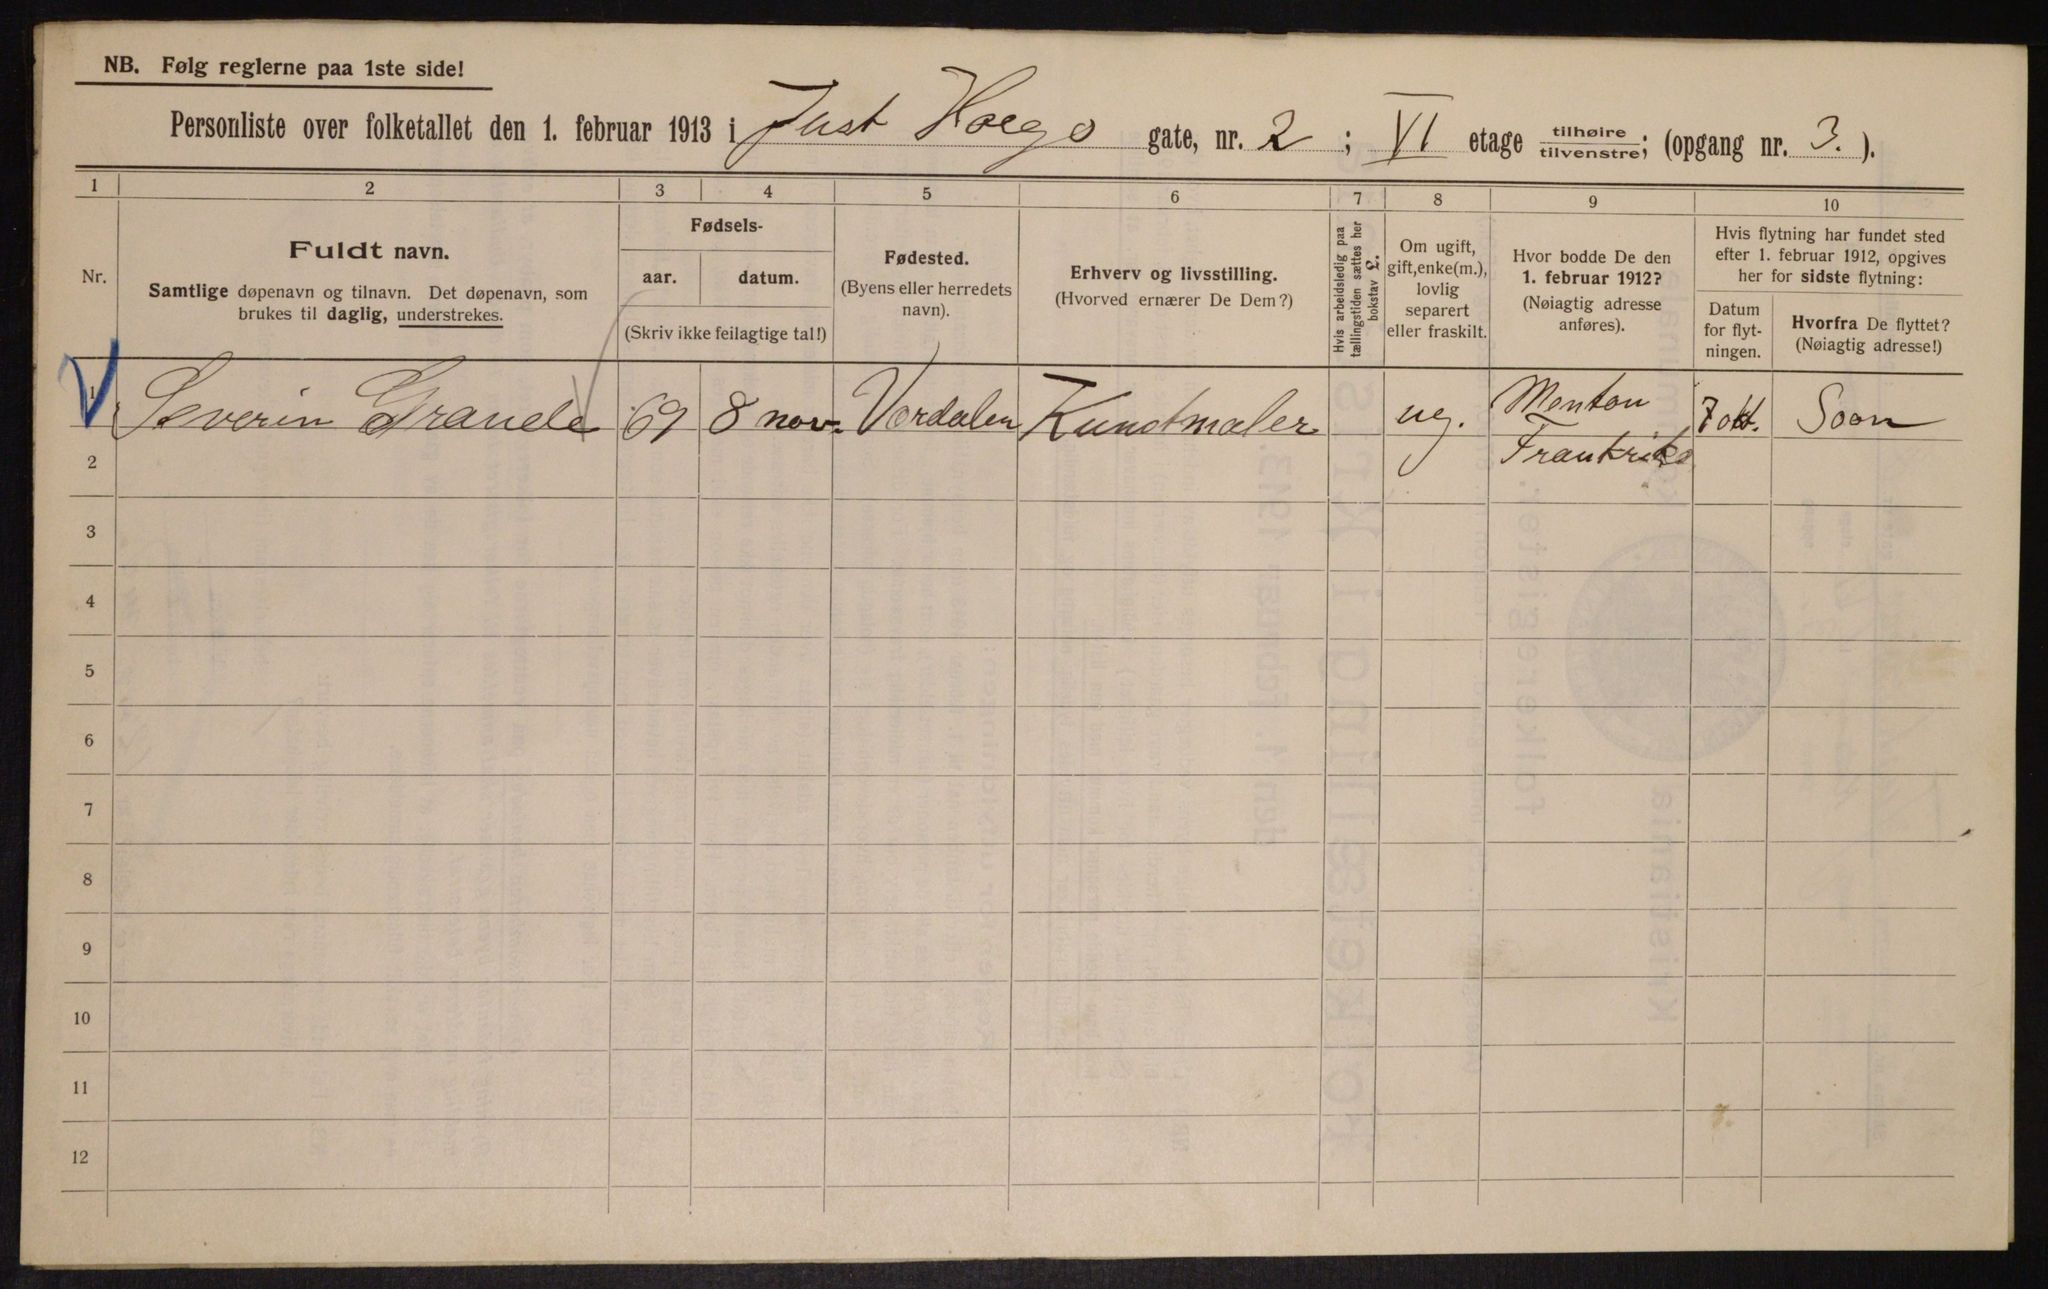 NB. Følg reglerne paa 1ste side!
Personliste over folketallet den 1. februar 1913 i Just Hoegs gate, nr. 2 ; VI etage tilhøire/tilvenstre; (opgang nr. 3. ).
1 2 3 4 5 6 7 8 9 10
Nr.
Fuldt navn.
Samtlige døpenavn og tilnavn. Det døpenavn, som
brukes til daglig, understrekes.
Fødsels-
aar. datum.
(Skriv ikke feilagtige tal!)
Fødested.
(Byens eller herredets
navn).
Erhverv og livsstilling.
(Hvorved ernærer De Dem?)
Hvis arbeidsledig paa
tællingstiden sættes her
bokstav L.
Om ugift,
gift, enke(m.),
lovlig
separert
eller fraskilt.
Hvor bodde De den
1. februar 1912?
(Nøiagtig adresse
anføres).
Hvis flytning har fundet sted
efter 1. februar 1912, opgives
her for sidste flytning:
Datum
for flyt-
ningen.
Hvorfra De flyttet?
(Nøiagtig adresse!)
1 Severin Grande 69 8 nov. Værdalen Kunstmaler ug. Menton 7 okt. Soon
2 Frankrike
3
4
5
6
7
8
9
10
11
12